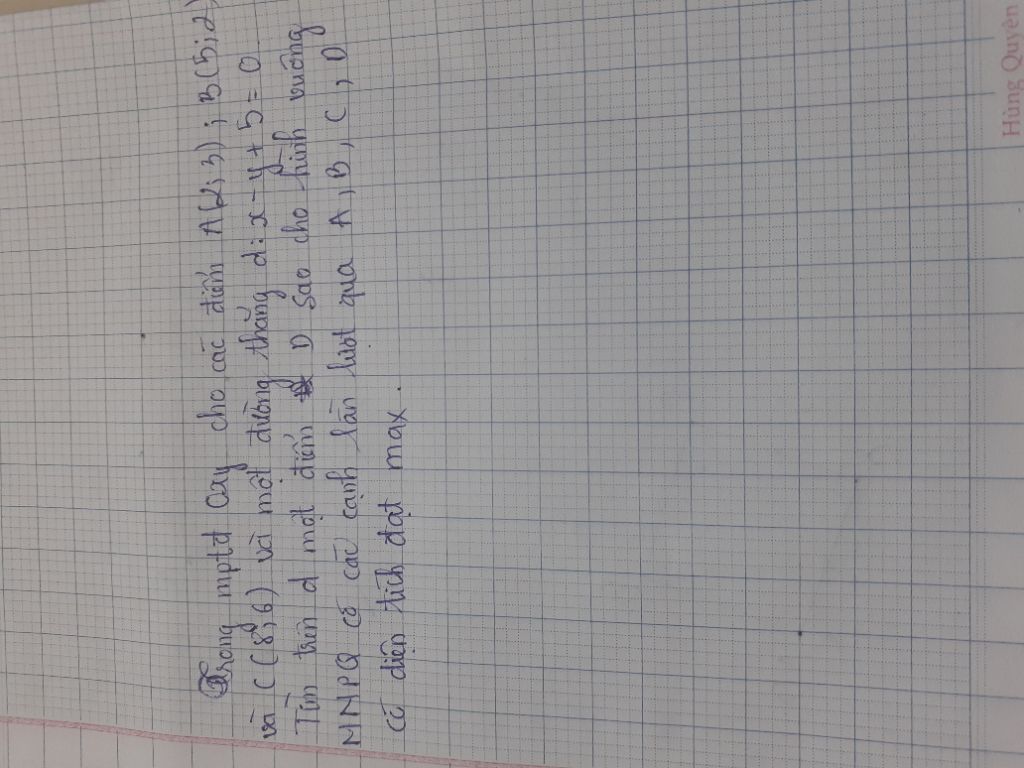 Trong mptđ Oxy cho các điểm A(2;3); B(5;2)
và C(8;6) và một đường thẳng d: x-y+5=0.
Tìm trên d một điểm D sao cho hình vuông
MNPQ có các cạnh lần lượt qua A, B, C, D
có diện tích đạt max.
Hùng Quyên